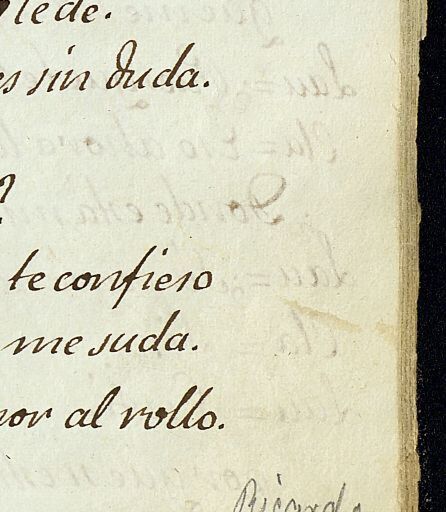 lede.
es sin duda.
?
te confieso
me suda.
nor al rollo.
Ricardo